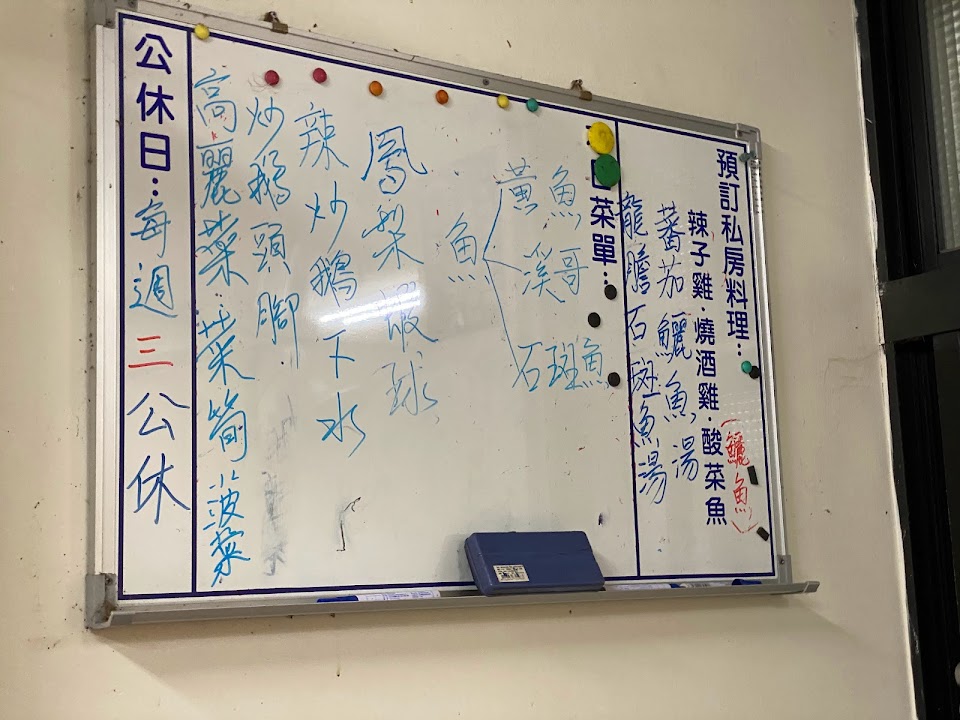 預訂私房料理…
辣子雞.燒酒雞.酸菜魚(鱺魚)
蕃茄鱺魚湯
龍膽石斑魚湯
菜單…
魚
黃魚
溪哥
石斑魚
鳳梨蝦球
辣炒鵝下水
炒鵝頭腳
高麗菜.菜筍菠菜
公休日…每週三公休